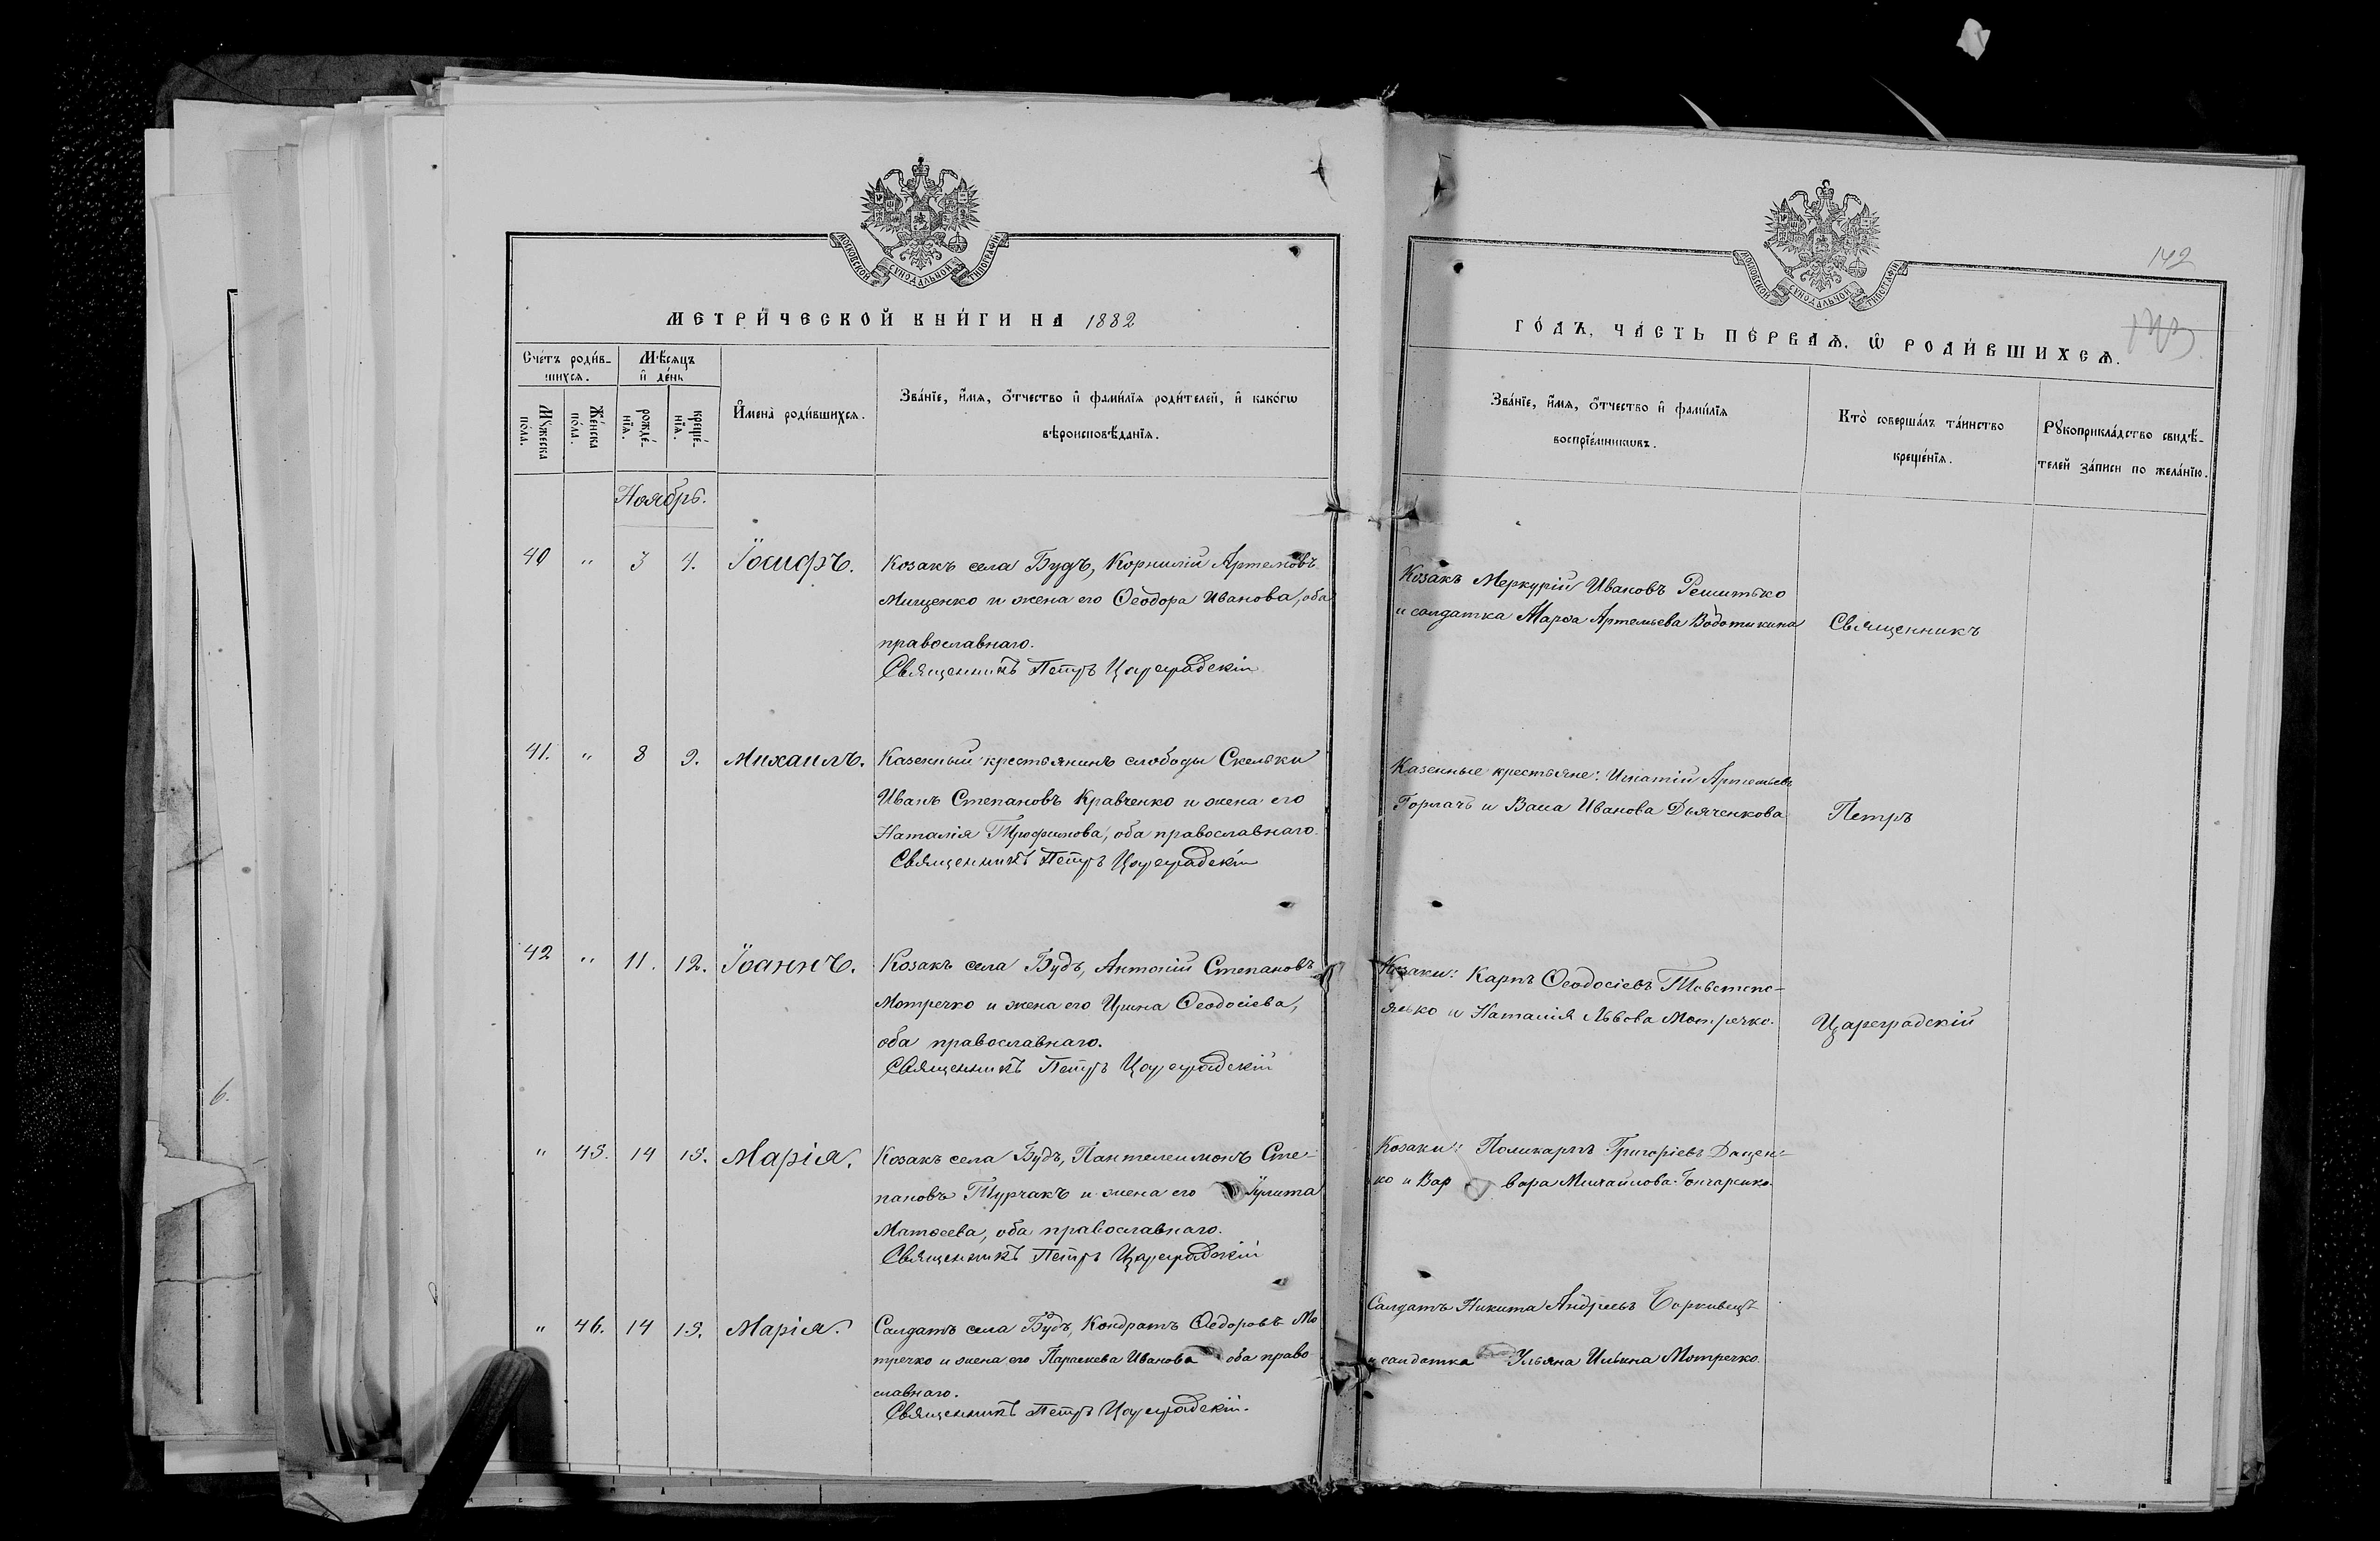 МОСКОВСКОЙ СѴНОДАЛЬНОЙ ТИПОГРАФІИ
МЕТРИ́ЧЕСКОЙ КНИ́ГИ НА 1882
Сче́тъ роди́в-
шихся.
Мѣсяцъ
и де́нь
Мꙋжеска
по́ла.
Же́нска
по́ла.
рожде́-
нїя.
креще́-
нїя.
Имена̀ роди́вшихся.
Зва́нїе, и́мя, о́тчество и фами́лїя роди́телей, и како́гѡ
вѣроисповѣ́данїя.
Ноябрь.
40 " 3 4. Іосифъ. Козакъ села Будъ, Корнилій Артемовъ
Мищенко и жена его Ѳеодора Иванова, оба
православнаго.
Священникъ Петръ Цареградскій
41. " 8 9. Михаилъ. Казенный крестьянинъ слободы Скельки
Иванъ Степановъ Кравченко и жена его
Наталія Трофимова, оба православнаго.
Священникъ Петръ Цареградскій
42 " 11. 12. Іоаннъ. Козакъ села Будъ, Антоній Степановъ
Мотречко и жена его Ирина Ѳеодосіева,
оба православнаго.
Священникъ Петръ Цареградскій
" 45. 14 15. Марія. Козакъ села Будъ, Пантелеимонъ Сте-
пановъ Турчакъ и жена его Іулита
Матѳеева, оба православнаго.
Священникъ Петръ Цареградскій
" 46. 14 15. Марія. Салдатъ села Будъ, Кондратъ Ѳедоровъ Мо
тречко и жена его Параскева Иванова оба право
славнаго.
Священникъ Петръ Цареградскій.
142
МОСКОВСКОЙ СѴНОДАЛЬНОЙ ТИПОГРАФІИ
ГО́ДЪ, ЧА́СТЬ ПЕ́РВАЯ, Ѿ РОДИ́ВШИХСЯ.
Зва́нїе, и́мя, о́тчество и фами́лїя
воспрїе́мникѡвъ.
Кто̀ соверша́лъ та́инство
креще́нїя.
Рꙋкоприкла́дство свидѣ́-
телей за́писи по жела́нїю.
Козакъ Меркурій Ивановъ Решитько
и салдатка Марѳа Артемьева
Священникъ
Казенные крестьяне: Игнатій Артемьевъ
Горлачъ и Васса Иванова Дьяченкова
Петръ
Козаки: Карпъ Ѳеодосіевъ Товстопе-
ялько и Наталія Львова Мотречко.
Цареградскій
Козаки: Поликарпъ Григоріевъ Дацен-
ко и Вар вара Михайлова Гончаренко
Салдатъ Никита Андреевъ Борковецъ
и салдатка Ульяна Ильина Мотречко.